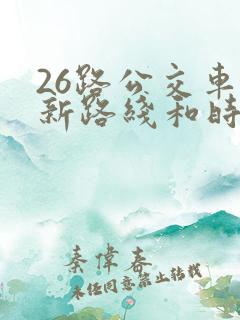 26路公交车
新路线和时
秦偉春
未经同意禁止转载